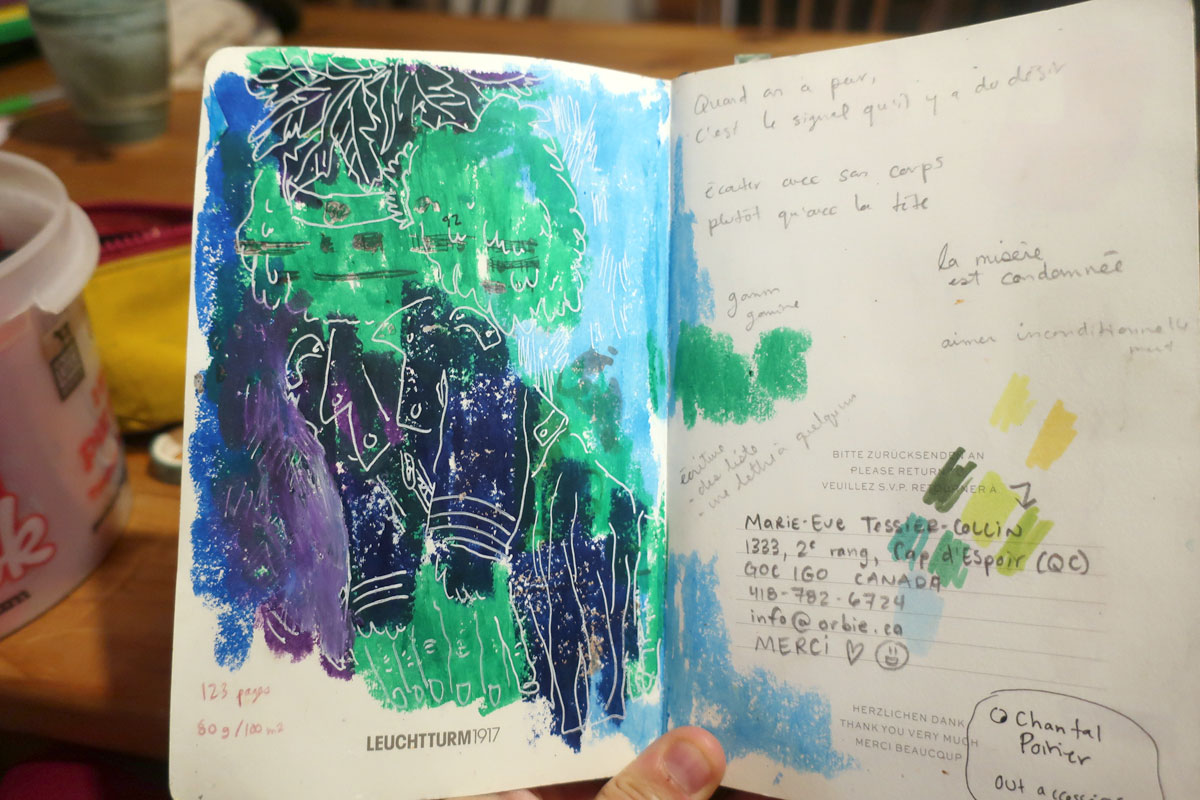 123 pages
80g/100 m2
LEUCHTTURM1917
Quand on a peur,
c'est le signal qu'il y a du désir
écouter avec son corps
plutôt qu'avec la tête
la misère
est condamnée
gamin
gamine
aimer inconditionnelle
ment
écriture
- des listes
- une lettre à quelqu'un
BITTE ZURÜCKSENDEN AN
PLEASE RETURN
VEUILLEZ S.V.P. RETOURNER À
MARIE-EVE TESSIER-COLLIN
1333, 2e rang, Cap d'Espoir (QC)
G0C 1G0 CANADA
418-782-6724
info@orbie.ca
MERCI ♡
HERZLICHEN DANK
THANK YOU VERY MUCH
MERCI BEAUCOUP
Chantal
Poirier